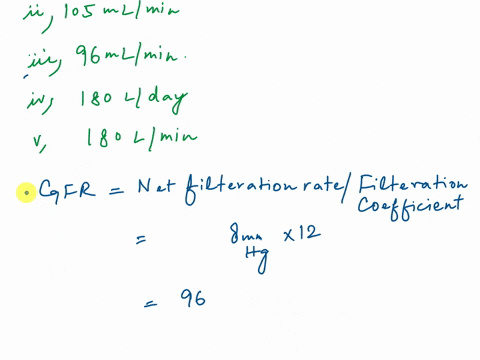 ii, 105 mL/min
iii, 96 mL/min.
iv, 180 L/day
v, 180 L/min
• GFR = Net filteration rate/ Filteration Coefficient
= 8mm Hg × 12
= 96